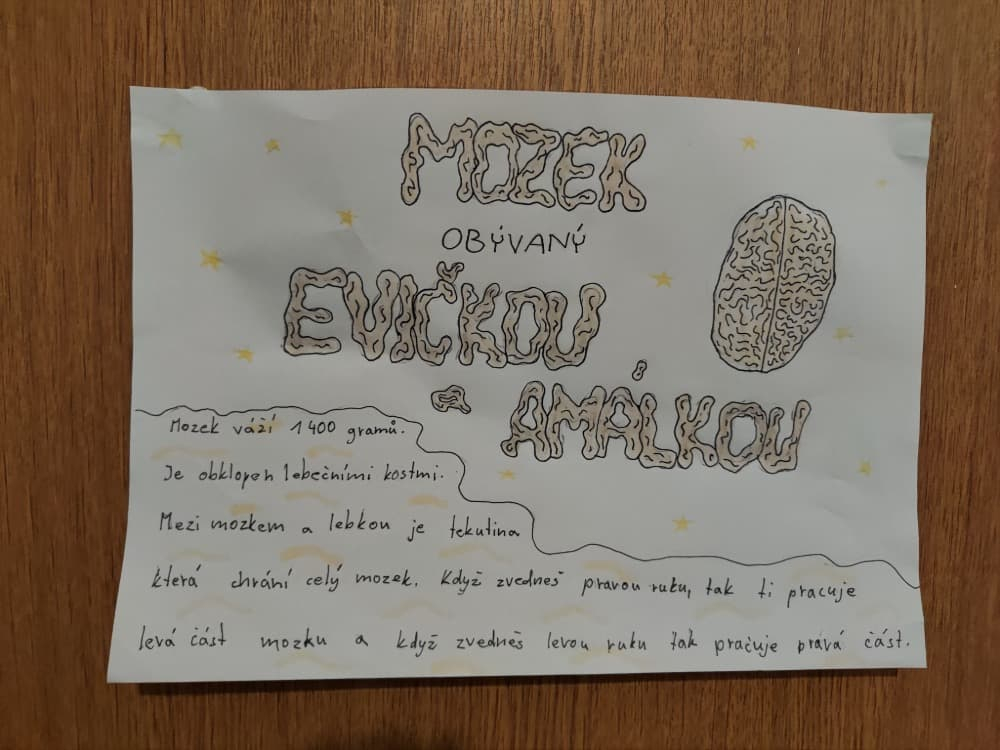 MOZEK
OBÝVANÝ
EVIČKOU
a AMÁLKOU
Mozek váží 1400 gramů.
Je obklopen lebečními kostmi.
Mezi mozkem a lebkou je tekutina
která chrání celý mozek. Když zvedneš pravou ruku, tak ti pracuje
levá část mozku a když zvedneš levou ruku tak pracuje pravá část.